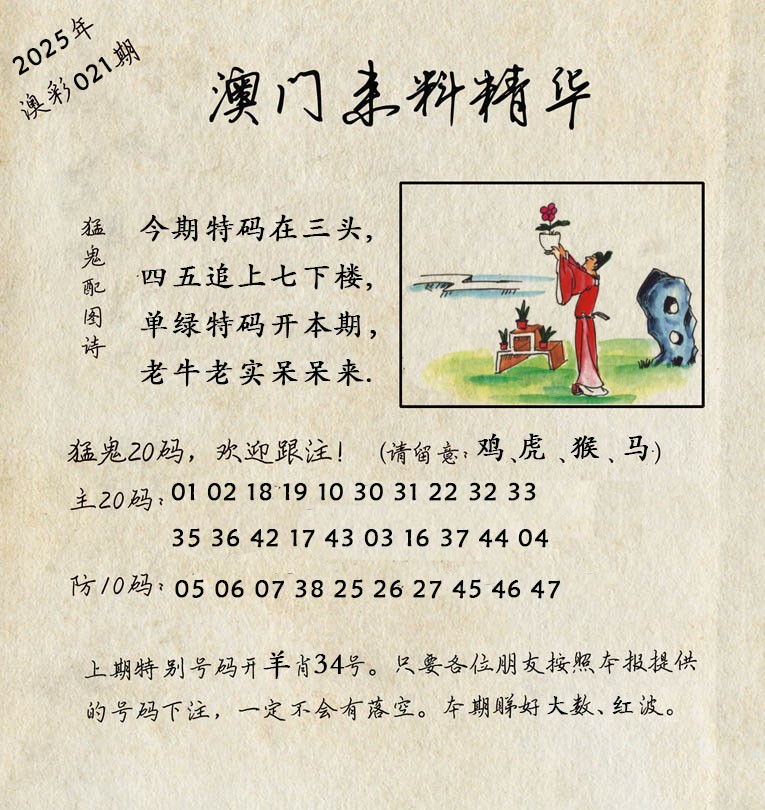 2025年
澳彩021期
澳门来料精华
猛鬼配图诗
今期特码在三头,
四五追上七下楼,
单绿特码开本期,
老牛老实呆呆来.
猛鬼20码，欢迎跟注！（请留意：鸡、虎、猴、马）
主20码：01 02 18 19 10 30 31 22 32 33
35 36 42 17 43 03 16 37 44 04
防10码：05 06 07 38 25 26 27 45 46 47
上期特别号码开羊肖34号。只要各位朋友按照本报提供
的号码下注，一定不会有落空。本期睇好大数、红波。